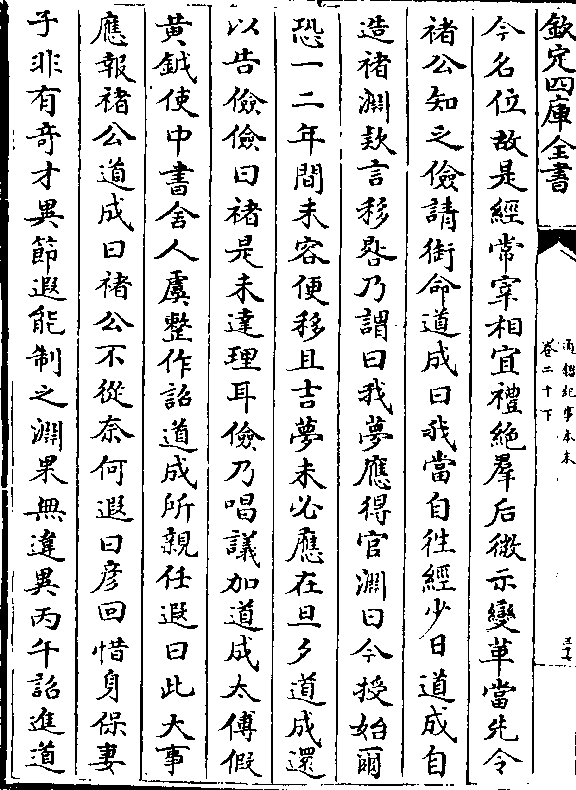 欽定四庫全書
通鑑紀事本末
卷二十下
今名位故是經常宰相宜禮絶羣后微示變革當先令
褚公知之儉請銜命道成曰我當自徃經少日道成自
造褚淵欵言移晷乃謂曰我夢應得官淵曰今授始爾
恐一二年間未容便移且吉夢未必應在旦夕道成還
以告儉儉曰褚是未達理耳儉乃唱議加道成太傅假
黄鉞使中書舍人虞整作詔道成所親任遐曰此大事
應報褚公道成曰褚公不從奈何遐曰彦回惜身保妻
子非有奇才異節遐能制之淵果無違異丙午詔進道